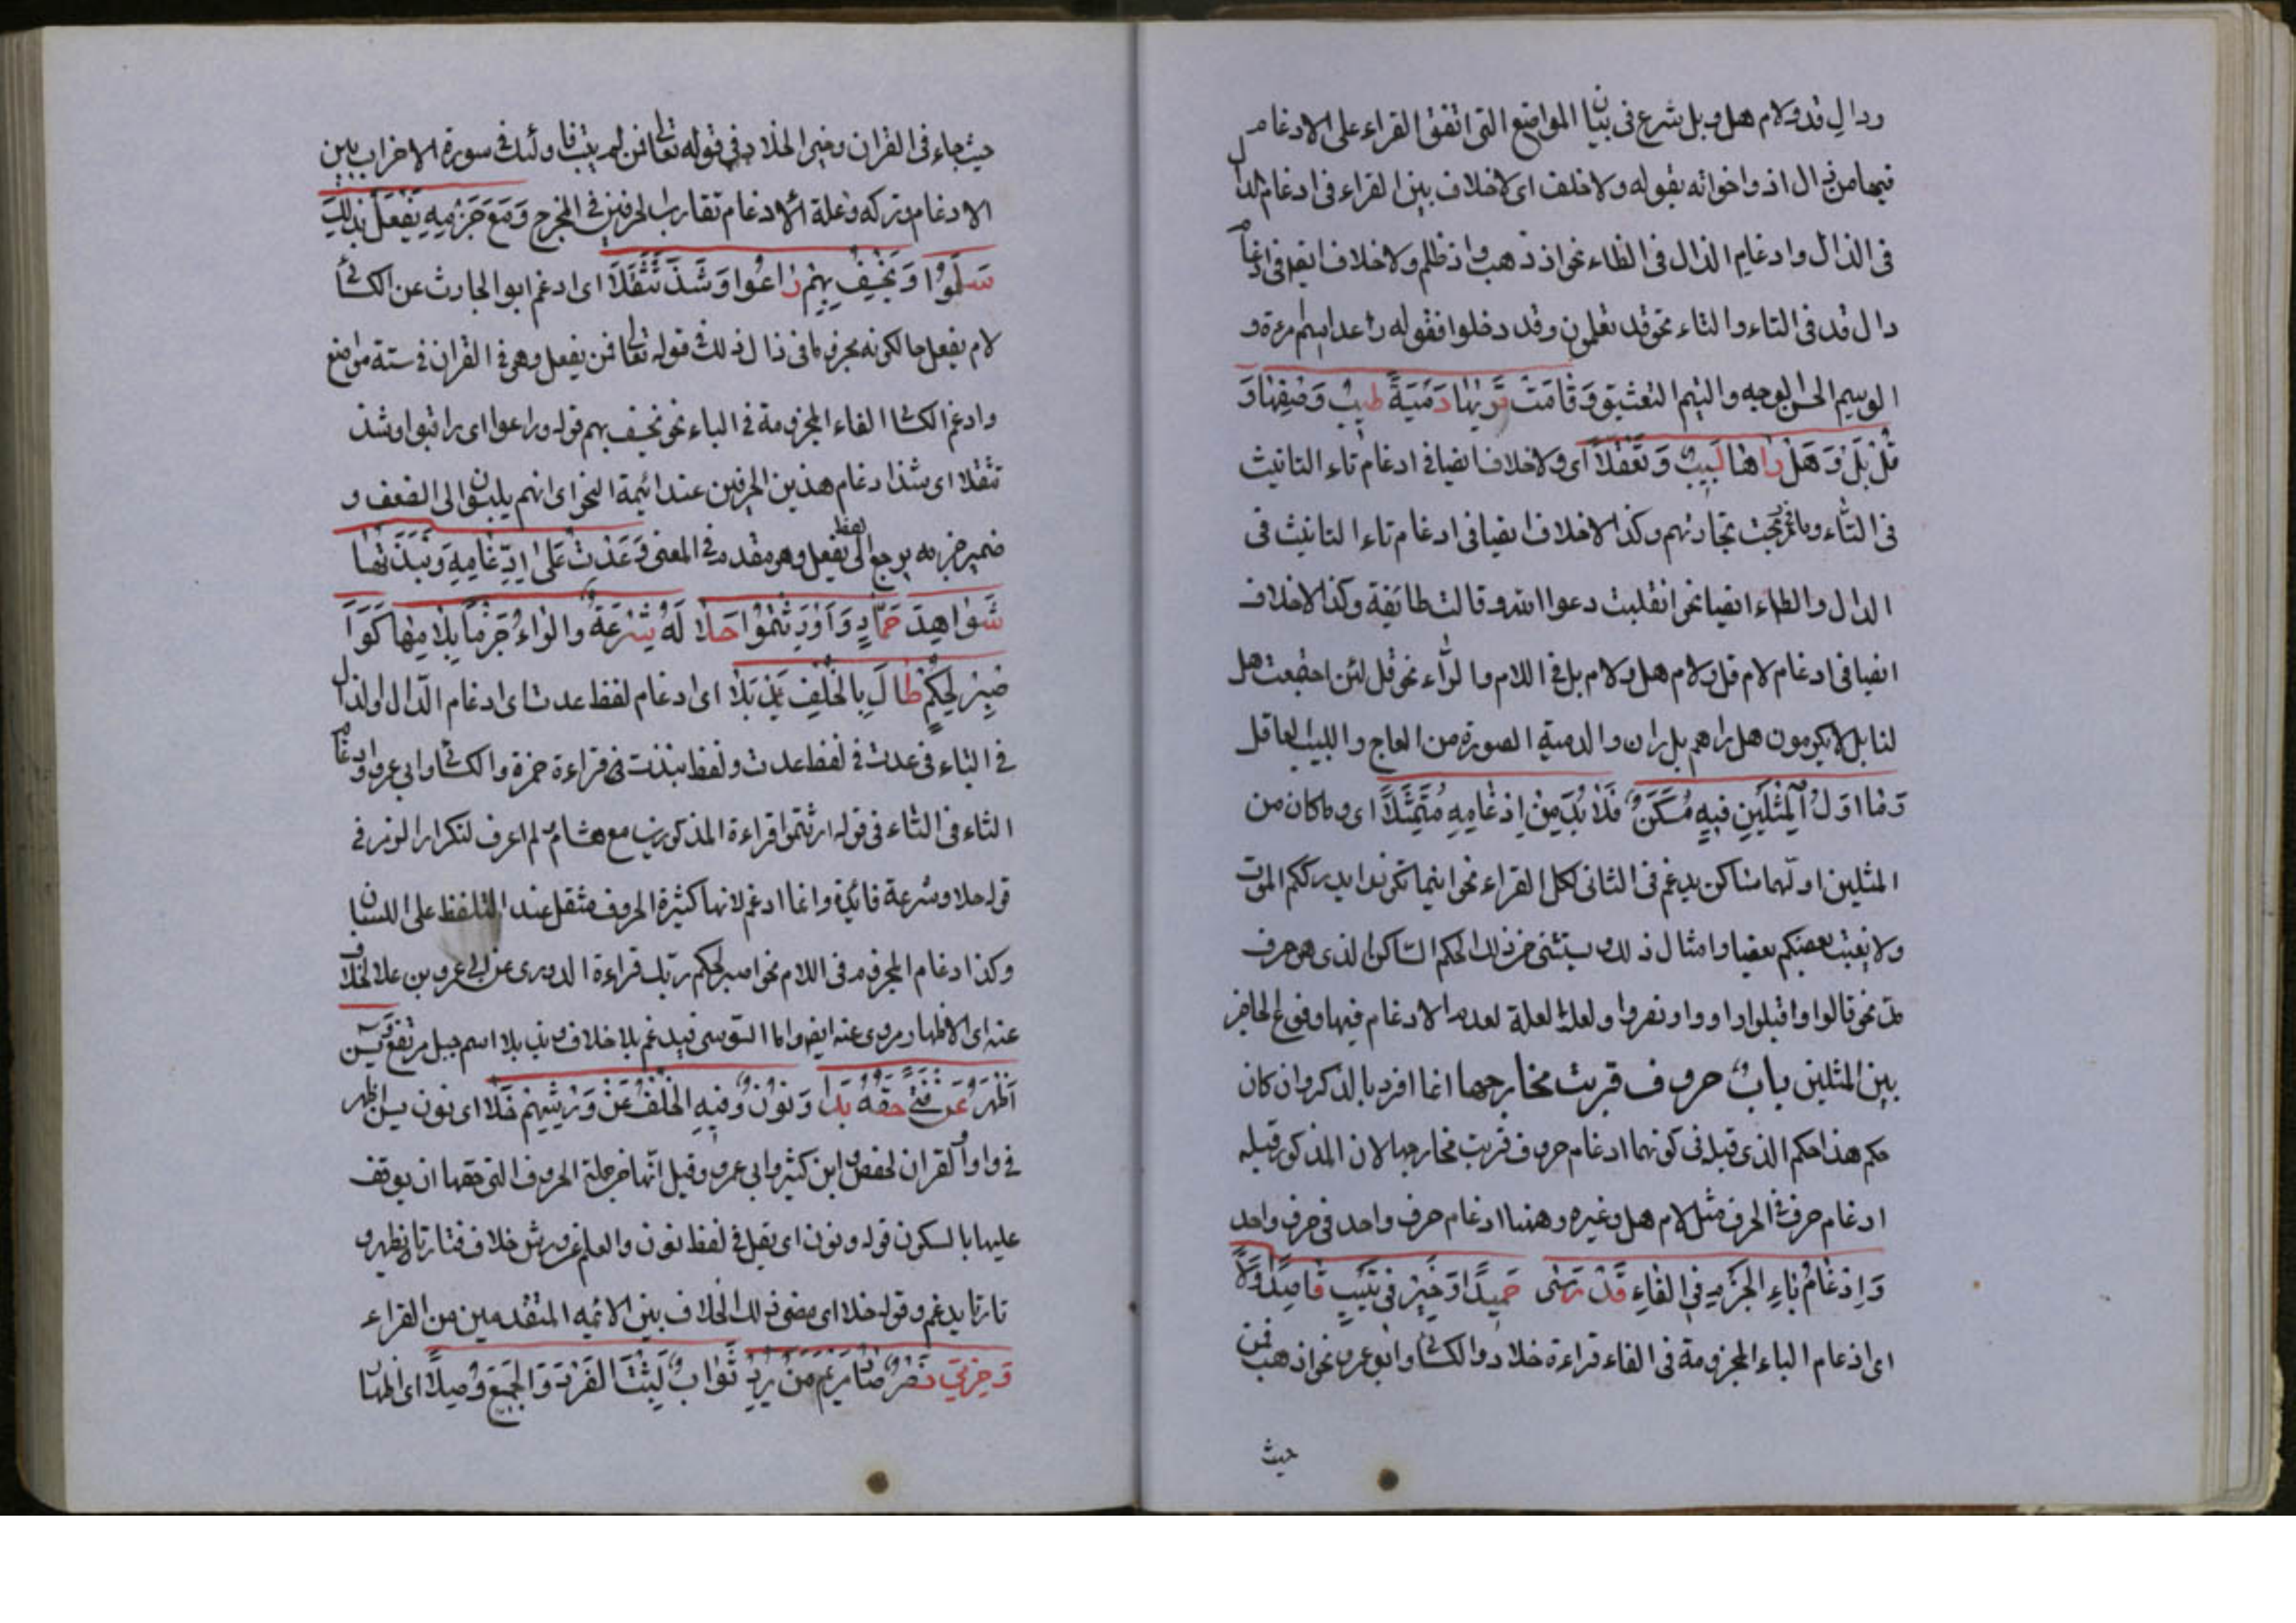 ودال قد ولام هل وبل شرع فى بيان المواضع التى اتفق القراء على الادغام
فيها من ذال اذ واخواته بقوله ولا خلف اى لا خلاف بين القراء فى ادغام الذال
فى الذال وادغام الذال فى الظاء نحو اذ ذهب واذ ظلم ولا خلاف ايضا فى ادغام
دال قد فى التاء والتاء نحو قد تعلمون وقد دخلوا فقوله
الوسيم الحسن الوجه والتيم التعشق وَقَامَتْ تُرِيهَا دُمْيَةٌ طِيبَ وَصْفِهَا وَ
قُلْ بَلْ وَهَلْ رَاهَا لَبِيبٌ وَيَعْقِلَا اى ولا خلاف ايضا فى ادغام تاء التانيث
فى التاء وما ربحت تجارتهم وكذا لا خلاف ايضا فى ادغام تاء التانيث فى
الدال والطاء ايضا نحو اثقلت دعوا الله وقالت طائفة وكذا لا خلاف
ايضا فى ادغام لام قل ولام هل ولام بل فى اللام والراء نحو قل لئن اجتمعت هل
لنا بل لا يكرمون هل راهم بل ران والدمية الصورة من العاج واللبيب العاقل
وَمَا اَوَّلُ الْمِثْلَيْنِ فِيهِ مُسَكَّنٌ فَلَا بُدَّ مِنْ اِدْغَامِهِ مُتَمَثِّلًا اى وما كان من
المثلين اولهما ساكن يدغم فى الثانى لكل القراء نحو اينما تكونوا يدرككم الموت
ولا يغتب بعضكم بعضا وامثال ذلك ويستثنى من ذلك الحكم الساكن الذى هو حرف
مد نحو قالوا واقبلوا
بين المثلين باب حروف قربت مخارجها انما افرد بالذكر وان كان
حكم هذا حكم الذى قبله فى كونهما ادغام حروف قربت مخارجها لان المذكور قبله
ادغام حرف فى الحرف مثل لام هل وغيره وهنا ادغام حرف واحد فى حرف واحد
وَاِدْغَامُ بَاءِ الْجَزْمِ فِى الْفَاءِ قَدْ رَسَى حَمِيدًا وَخَيِّرْ فِى يَتُبْ قَاصِدًا وَلَا
اى ادغام الباء المجزومة فى الفاء قراءة خلاد والكسائى وابو عمرو نحو اذهب فمن
حيث
حيث جاء فى القران وخير الخلاد فى قوله تعالى فمن لم يتب فاولئك فى سورة الاحزاب بين
الادغام وتركه وعلة الادغام تقارب الحرفين فى المخرج وَمَعْ جَزْمِهِ يَفْعَلْ بِذٰلِكَ
سَلَّمُوا وَيَخْسِفْ بِهِمْ رَاعُوا وَشَذَّ تَثَقُّلَا اى ادغم ابو الحارث عن الكسائى
لام يفعل حالكونه مجزوما فى ذال ذلك قوله تعالى فمن يفعل وهى فى القران فى ستة مواضع
وادغم الكسائى الفاء المجزومة فى الباء نحو نخسف بهم قوله وراعوا اى راقبوا وشذ
تثقلا اى شذ ادغام هذين الحرفين عند ائمة النحو اى انهم الى الضعف و
ضمير جزمه يرجع الى لفظ يفعل وهو مقدم فى المعنى وَعُذْتُ عَلَى اِدْغَامِهِ وَنَبَذْتُهَا
شَوَاهِدُ حَمَّادٍ وَاُورِثْتُمُوا حَلَا لَهُ شَرْعُهُ وَالرَّاءُ جَزْمًا بِلَامِهَا كَوَا
صْبِرْ لِحُكْمِ طَالَ بِالْخُلْفِ يَذْبُلَا اى ادغام لفظ عدت اى ادغام الدال والذال
فى التاء فى عدت فى لفظ عدت ولفظ نبذت فى قراءة حمزة والكسائى وابى عمرو وادغام
الثاء فى التاء فى قوله اورثتموا قراءة المذكورين مع هشام لم اعرف لتكرار الرمز فى
قوله حلا وشرعه فائدة وانما ادغم لانها كثيرة الحروف مثقل عند التلفظ على اللسان
وكذا ادغام المجزوم فى اللام نحو اصبر لحكم ربك قراءة الدورى عن ابى عمرو بن علا الخلاف
عنه اى الاظهار مروى عنه ايضا واما السوسى فيدغم بلا خلاف يذبلا اسم جبل مرتفع وَيٰسٓ
اَظْهِرْ عَنْ فَتًى حَقُّهُ بَدَا وَنُونَ وَفِيهِ الْخُلْفُ عَنْ وَرْشِهِمْ خَلَا اى نون يس اظهر
فى واو القران لحفص ابن كثير وابى عمرو وقيل انها من جملة الحروف التى حقها ان يوقف
عليها بالسكون قوله ونون اى يقل فى لفظ نون والعلم عن ورش خلاف فتارتا يظهر و
تارتا يدغم وقوله خلا اى مضى ذلك الخلاف بين الائمه المتقدمين من القراء
وَحِرْمِيُّ نَصْرٍ صَادَ مَرْيَمَ مَنْ يُرِدْ ثَوَابَ لَبِثْتَ الْفَرْدَ وَالْجَمْعَ وَصَّلَا اى اظهار